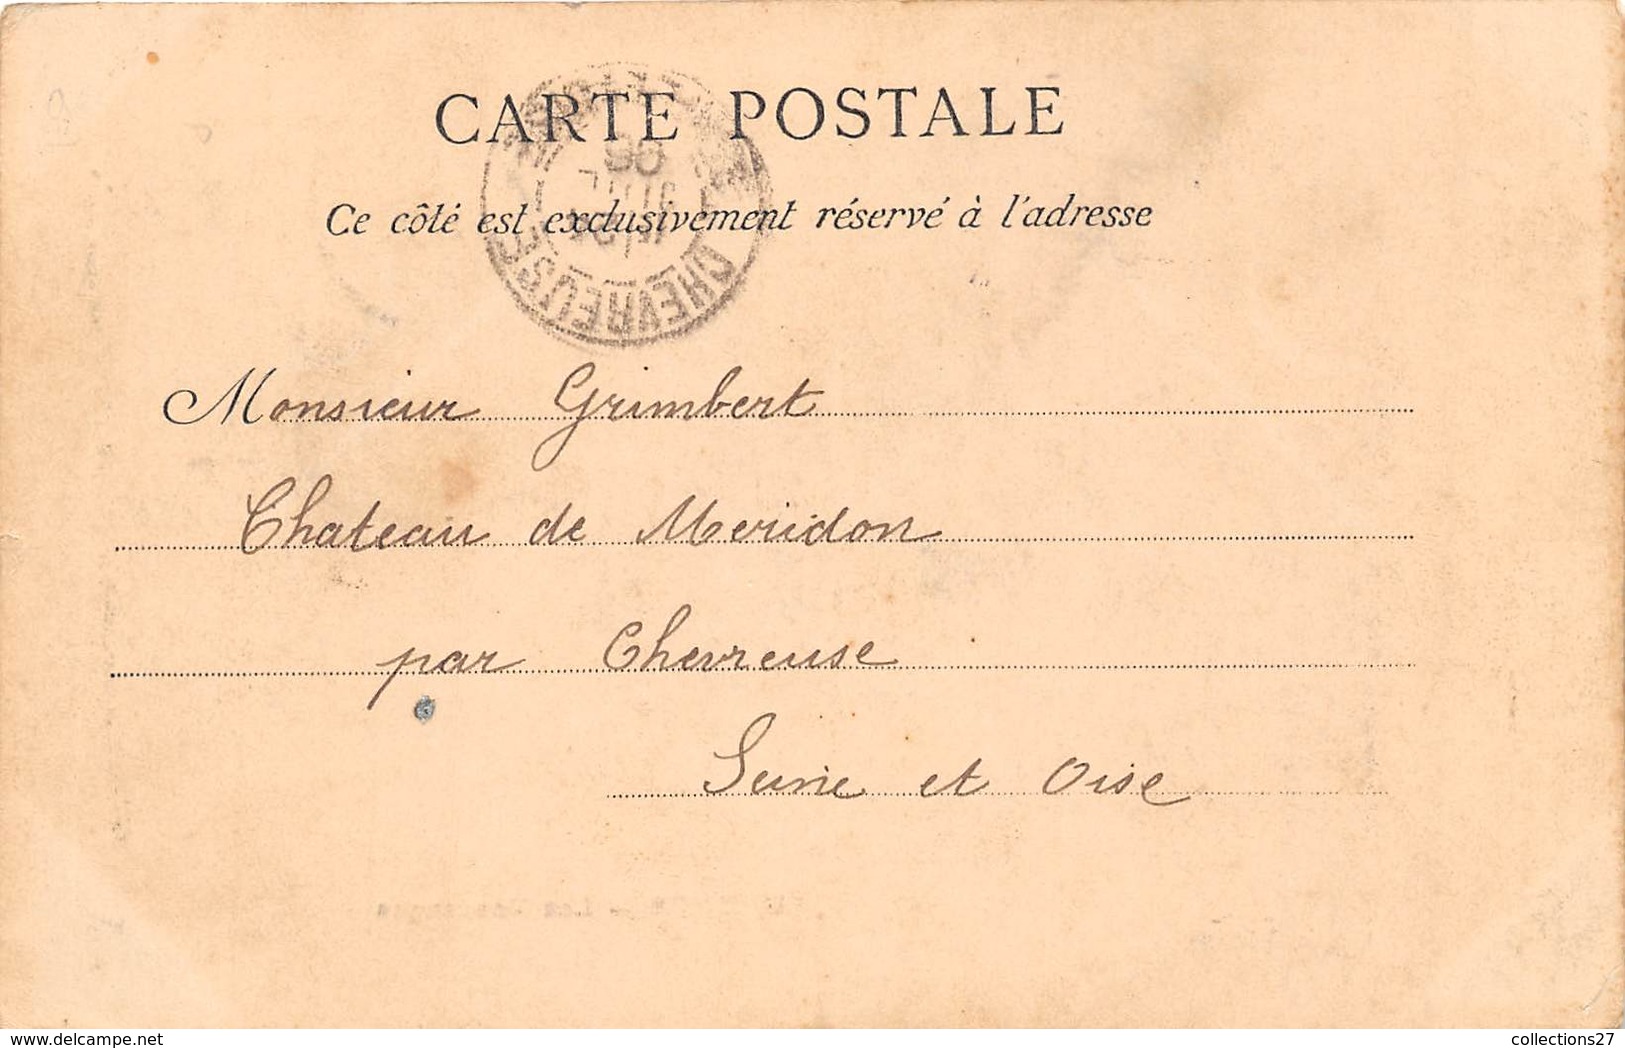 CARTE POSTALE
Ce côté est exclusivement réservé à l'adresse
CHEVREUSE
Monsieur Grimbert
Chateau de Meridon
par Chevreuse
Seine et Oise
delcampe.net
collections27